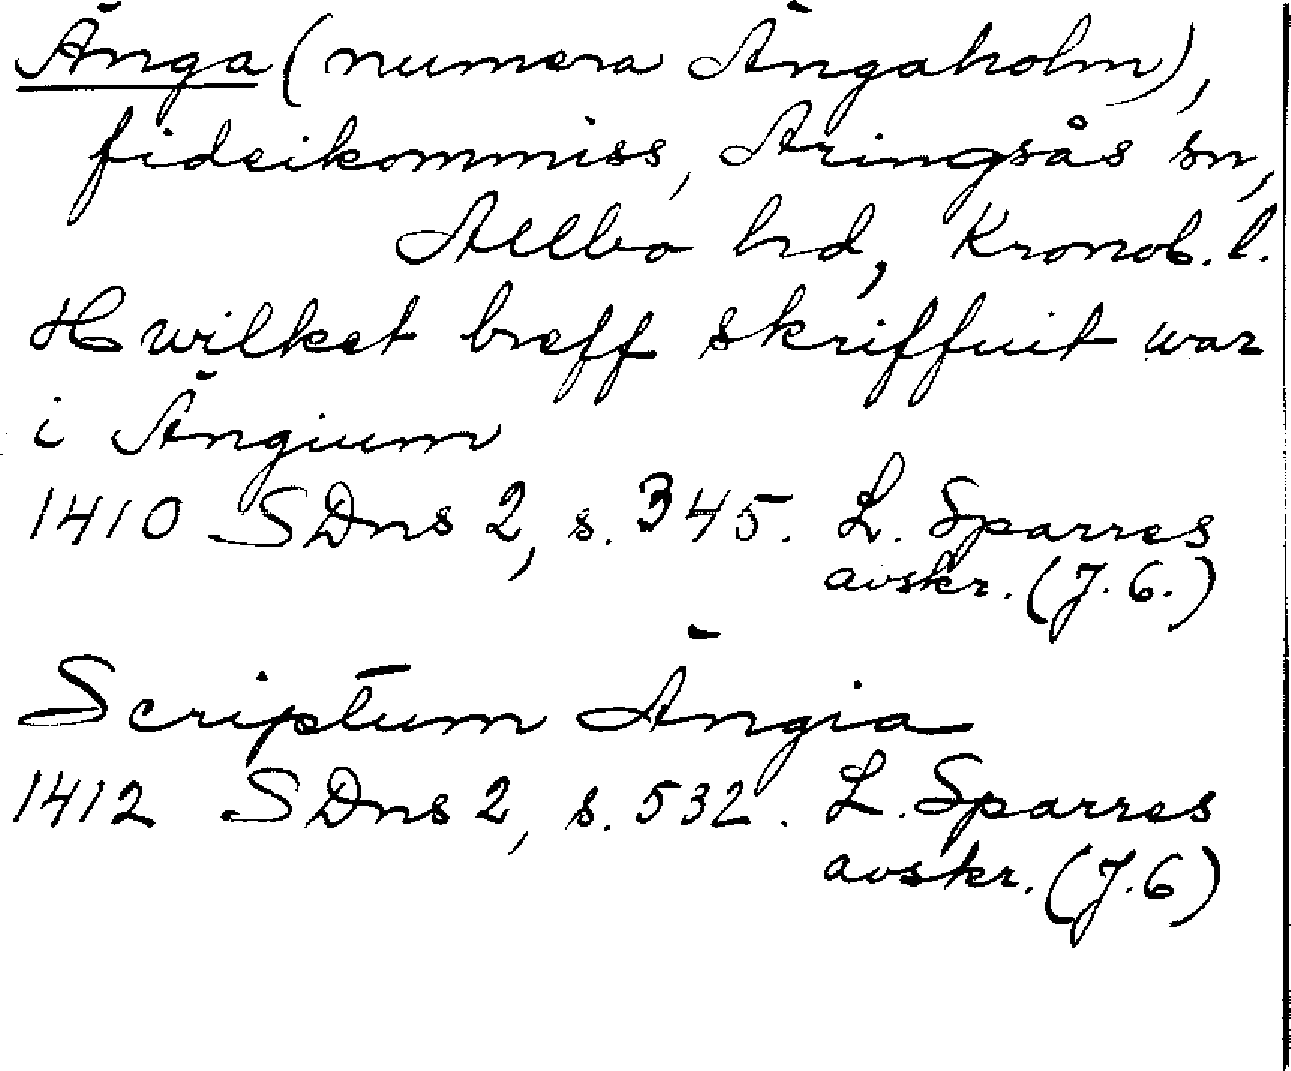 Änga (numera Ängaholm),
fideikommiss, Aringsås sn,
Allbo hd, Kronob. l.
Hwilket breff skriffuit war
i Ängium
1410 SDns 2, s. 345. L. Sparres
avskr. (J. 6.)
Scriptum Ängia
1412 SDns 2, s. 532. L. Sparres
avskr. (J. 6)